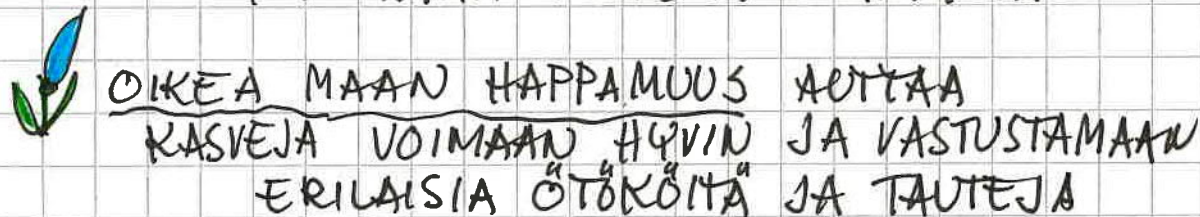 OIKEA MAAN HAPPAMUUS AUTTAA
KASVEJA VOIMAAN HYVIN JA VASTUSTAMAAN
ERILAISIA ÖTÖKÖITÄ JA TAUTEJA